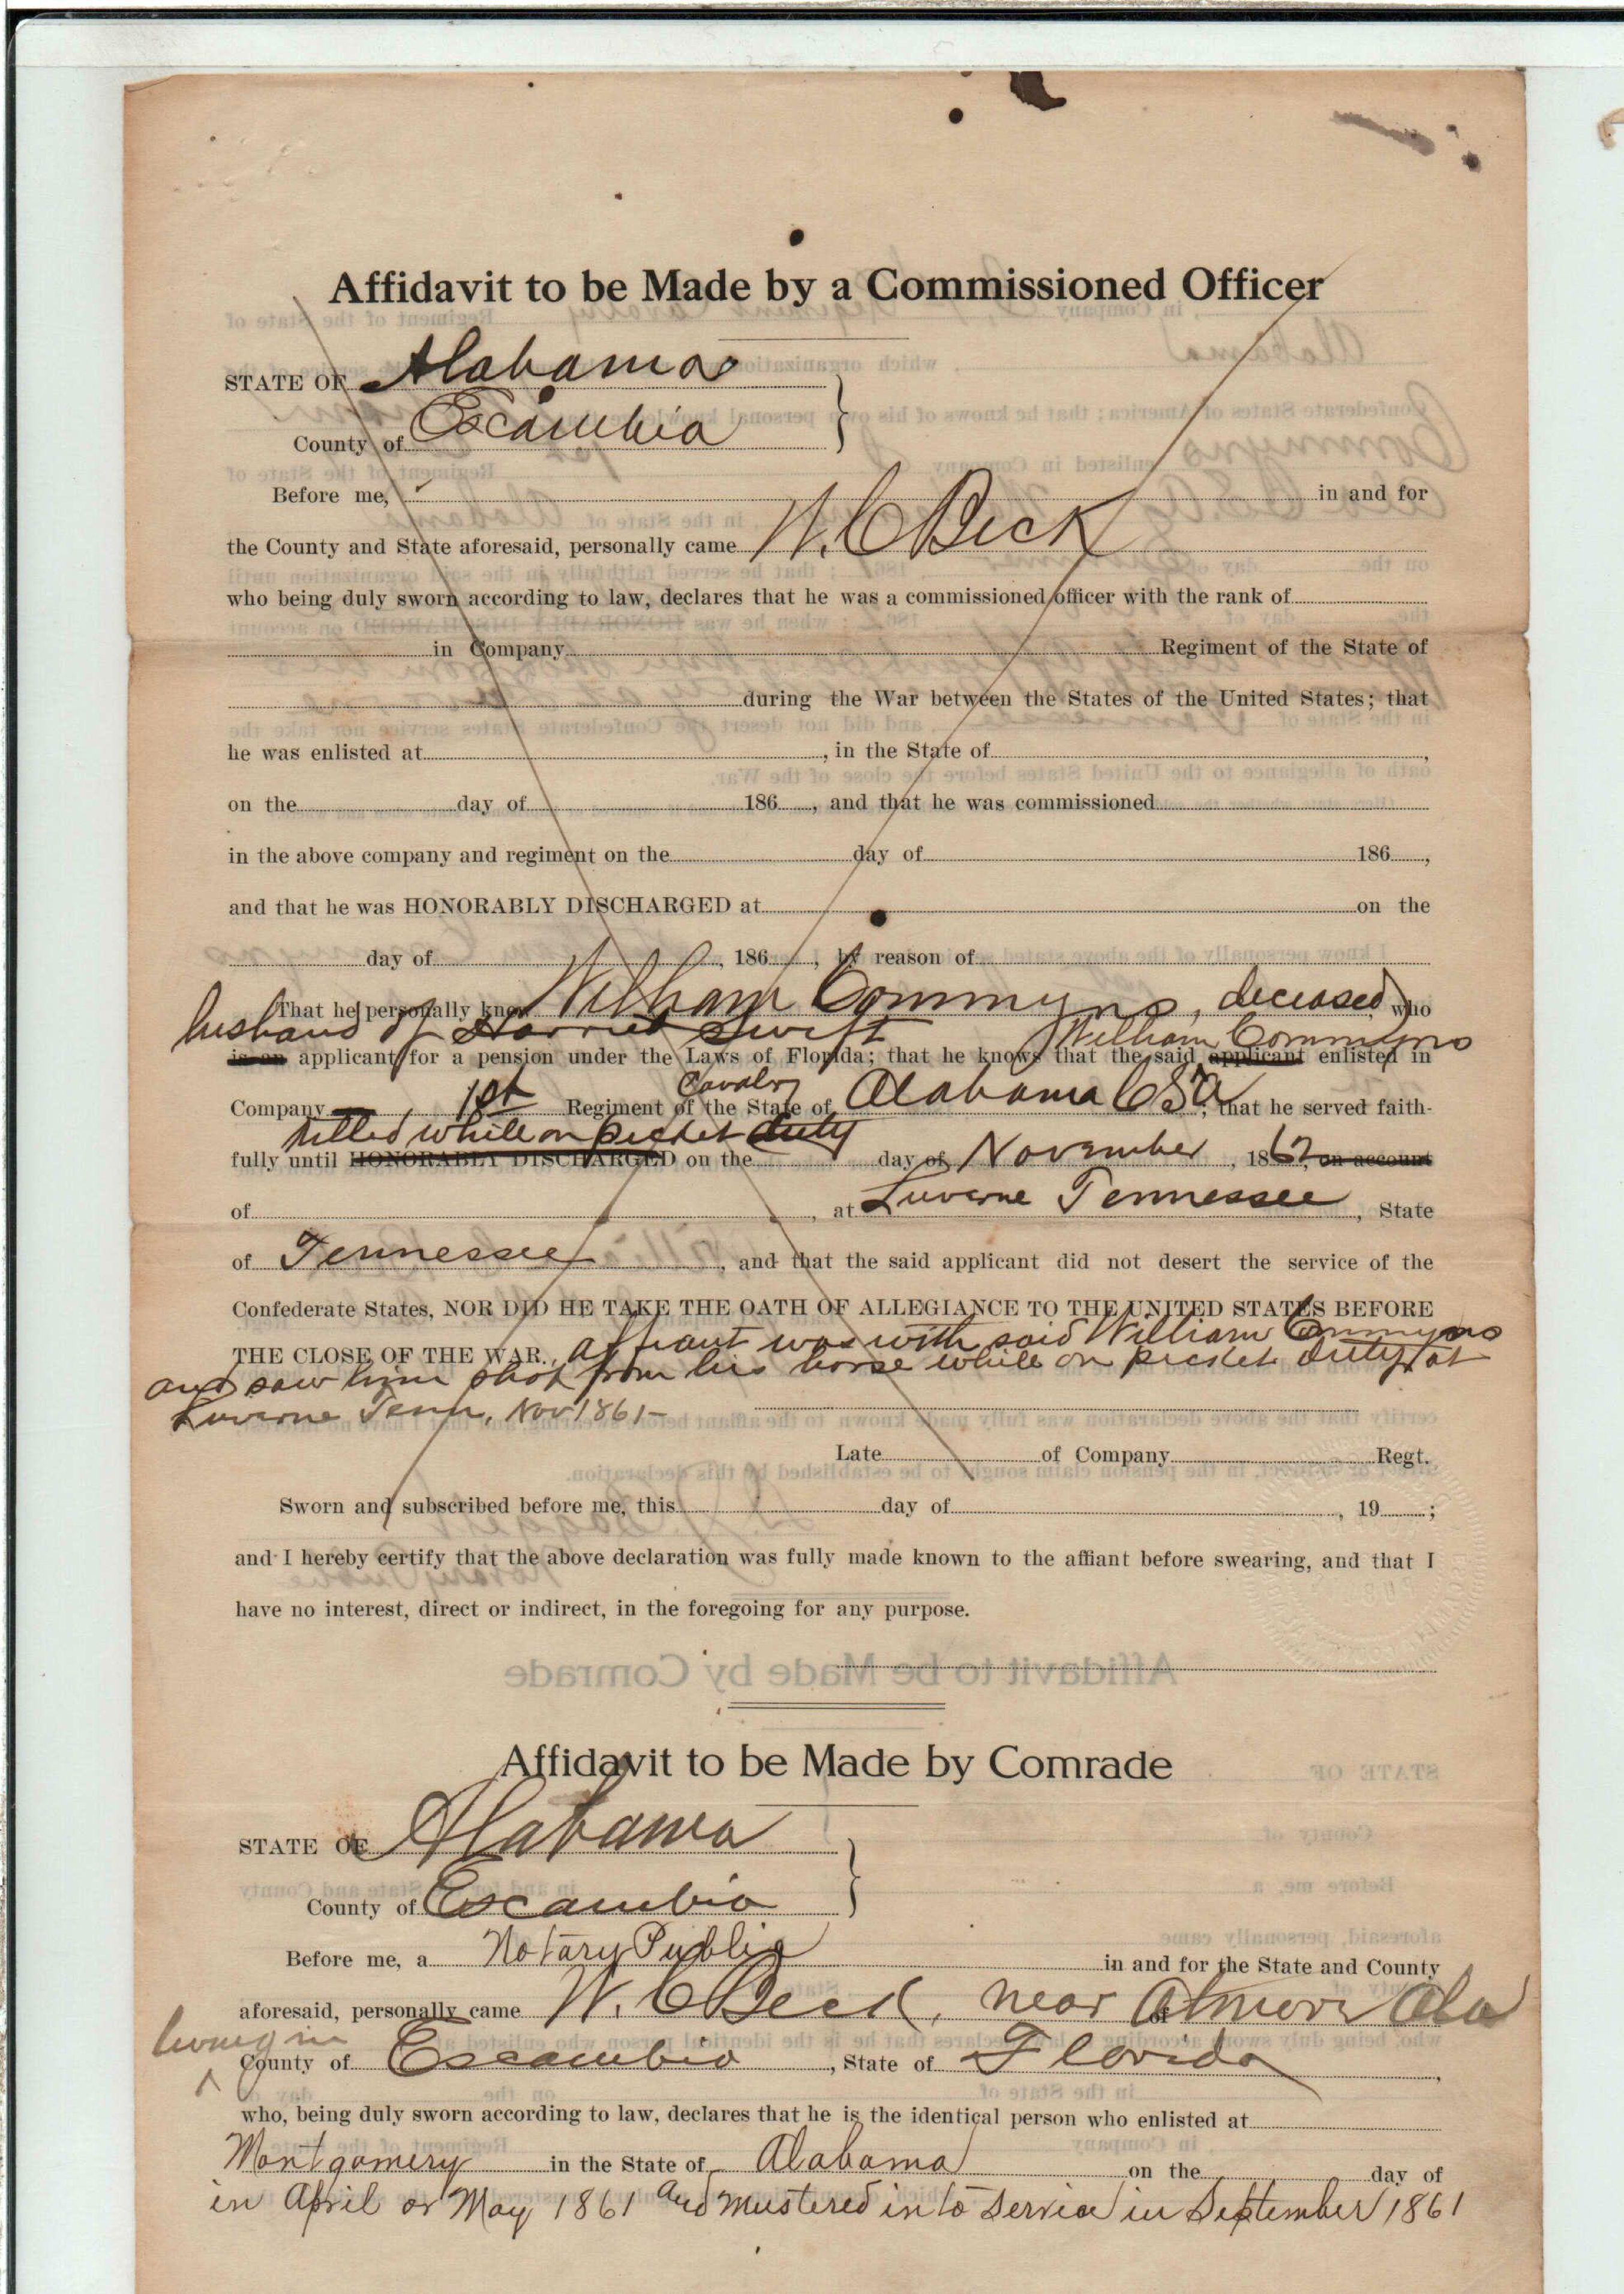 Affidavit to be Made by a Commissioned Officer
STATE OF Alabama
County of Escambia
Before me, in and for
the County and State aforesaid, personally came W. C Beck
who being duly sworn according to law, declares that he was a commissioned officer with the rank of
in Company Regiment of the State of
during the War between the States of the United States; that
he was enlisted at , in the State of ,
on the day of 186 , and that he was commissioned
in the above company and regiment on the day of 186 ,
and that he was HONORABLY DISCHARGED at on the
day of , 186 , by reason of
That he personally knew William Commyns, deceased, who
husband of Harriet Swift William Commyns
is an applicant for a pension under the Laws of Florida; that he knows that the said applicant enlisted in
Cavalry
Company 1st Regiment of the State of Alabama CSA; that he served faith-
killed while on picket duty
fully until HONORABLY DISCHARGED on the day of November, 1862, on account
of , at Luverne Tennessee, State
of Tennessee, and that the said applicant did not desert the service of the
Confederate States, NOR DID HE TAKE THE OATH OF ALLEGIANCE TO THE UNITED STATES BEFORE
THE CLOSE OF THE WAR. affiant was with said William Commyns
and saw him shot from his horse while on picket duty at
Luverne Tenn, Nov 1861-
Late of Company Regt.
Sworn and subscribed before me, this day of , 19 ;
and I hereby certify that the above declaration was fully made known to the affiant before swearing, and that I
have no interest, direct or indirect, in the foregoing for any purpose.
Affidavit to be Made by Comrade
STATE OF Alabama
County of Escambia
Before me, a Notary Public in and for the State and County
aforesaid, personally came W. C Beck, near Atmore Ala
living in
County of Escambia, State of Florida,
who, being duly sworn according to law, declares that he is the identical person who enlisted at
Montgomery in the State of Alabama on the day of
in April or May 1861 and mustered into service in September 1861